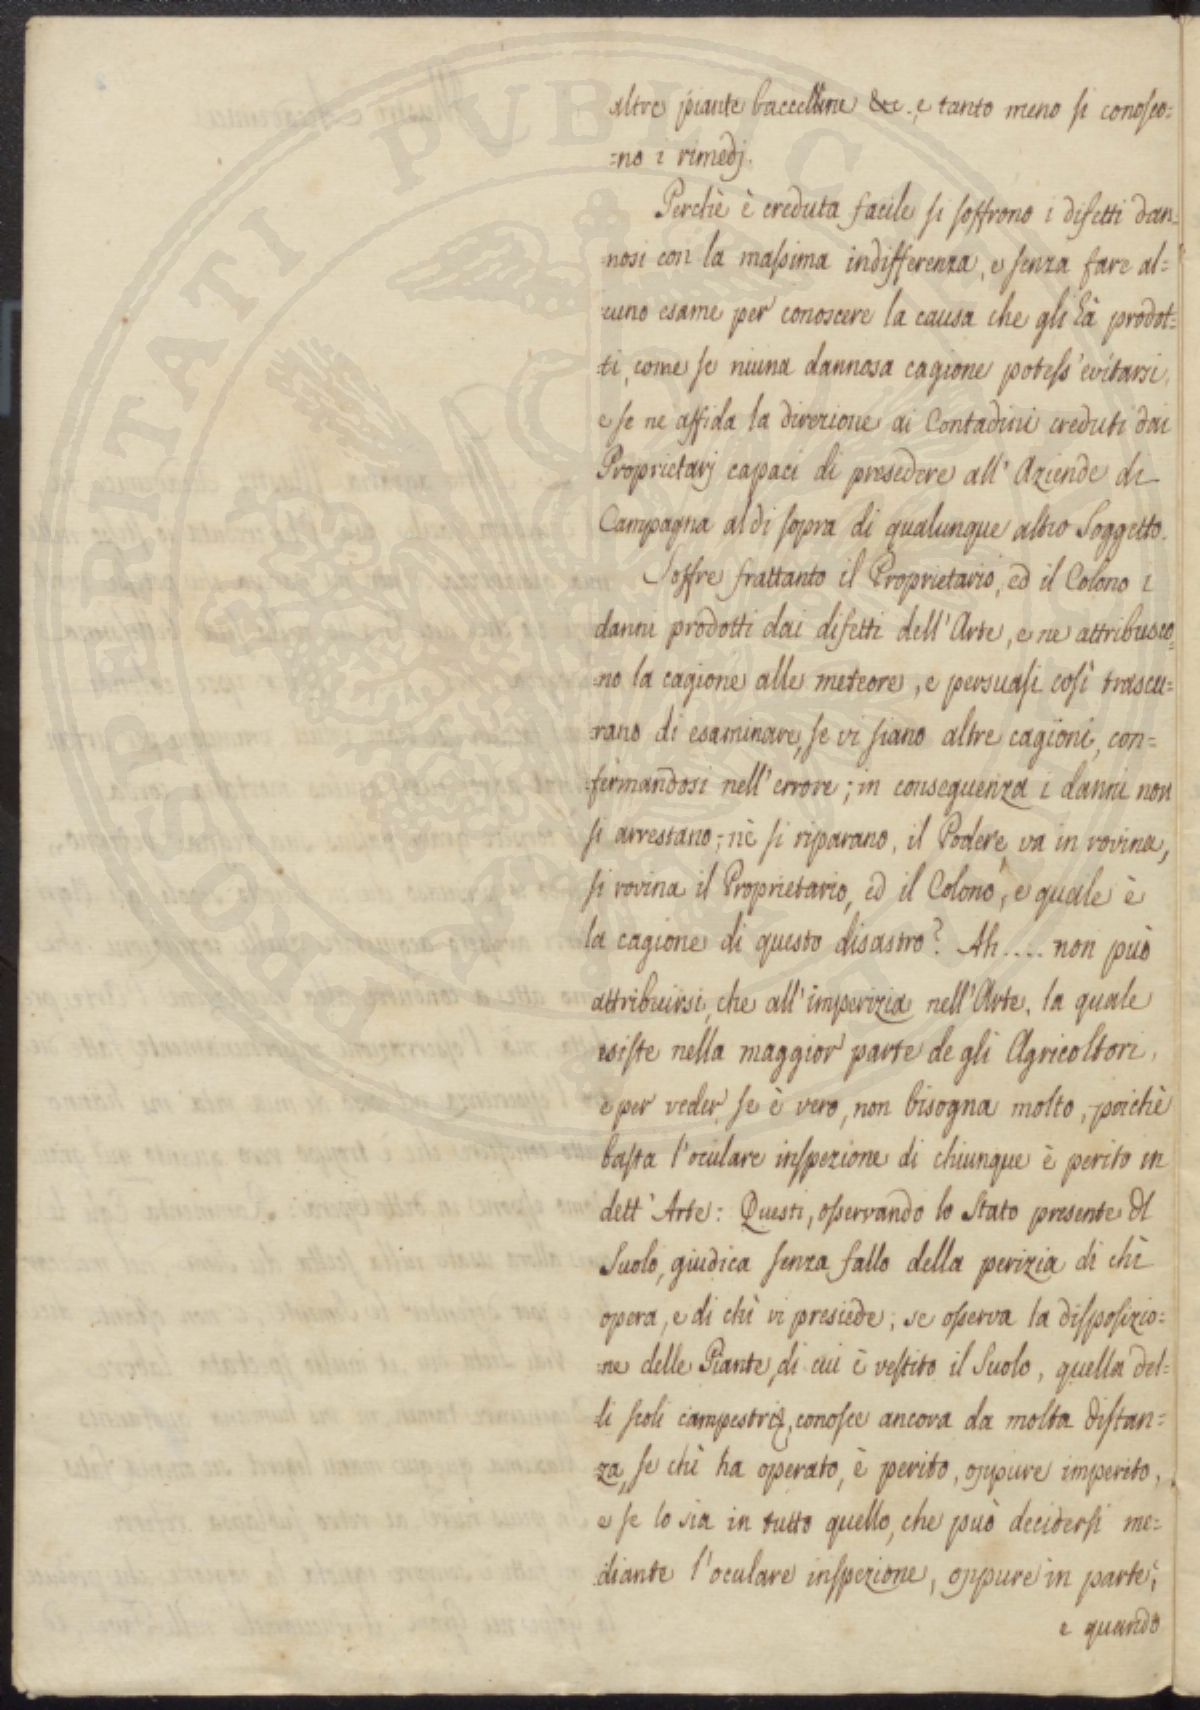 altre piante baccelline &c., e tanto meno si conosco=
=no i rimedj.
Perchè è creduta facile si soffrono i difetti dan=
=nosi con la massima indifferenza, e senza fare al=
=cuno esame per conoscere la causa che gli hà prodot=
ti, come se niuna dannosa cagione potess'evitarsi,
e se ne affida la direzione ai Contadini creduti dai
Proprietarj capaci di presedere all'Aziende di
Campagna al di sopra di qualunque altro Soggetto.
Soffre frattanto il Proprietario, ed il Colono i
danni prodotti dai difetti dell'Arte, e ne attribusco=
=no la cagione alle meteore, e persuasi così trascu=
=rano di esaminare, se vi siano altre cagioni, con=
=fermandosi nell'errore; in conseguenza i danni non
si arrestano, nè si riparano, il Podere va in rovina,
si rovina il Proprietario, ed il Colono, e quale è
la cagione di questo disastro? Ah.... non può
attribuirsi, che all'imperizia nell'Arte, la quale
esiste nella maggior parte de gli Agricoltori,
e per veder se è vero, non bisogna molto, poichè
basta l'oculare inspezione di chiunque è perito in
dett'Arte: Questi, osservando lo Stato presente del
Suolo, giudica senza fallo della perizia di chi
opera, e di chi vi presiede; se osserva la disposizio=
=ne delle Piante, di cui è vestito il Suolo, quella del=
li scoli campestri, conosce ancora da molta distan=
za, se chi ha operato, è perito, oppure imperito,
e se lo sia in tutto quello, che può decidersi me=
diante l'oculare inspezione, oppure in parte;
e quando
PROSPERITATI PUBLICAE